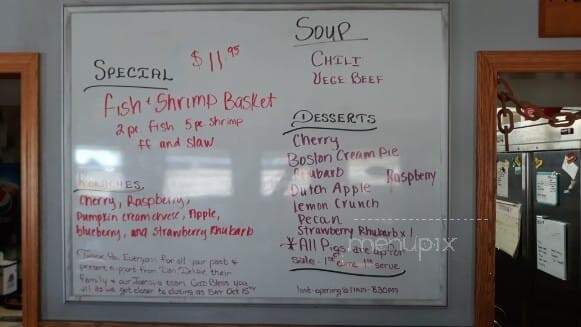 Special
$11.95
Fish + Shrimp Basket
2 pc. fish 5 pc. shrimp
ff and slaw
Kolaches
Cherry, Raspberry,
Pumpkin cream cheese, Apple,
blueberry, and Strawberry Rhubarb
you Everyone for all your past &
present support from their
Family & our team God Bless you
all as we get closer to closing as Sat Oct 15th
Soup
Chili
Vege Beef
Desserts
Cherry
Boston Cream Pie
Rhubarb Raspberry
Dutch Apple
Lemon Crunch
Pecan
Strawberry Rhubarb x 1
* All Pies are up for
sale - 1st come 1st serve
menupix